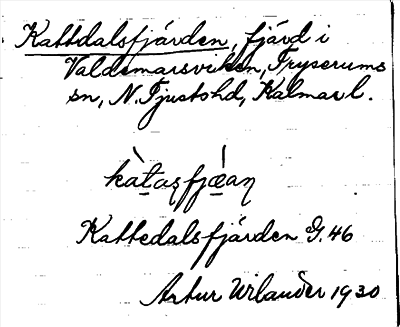 Kattdalsfjärden, fjärd i
Valdemarsviken, Tryserums
sn, N. Tjusts hd, Kalmar l.
kàtasfjæ̀aɳ
Kattedalsfjärden G. 46
Artur Wilander 1930